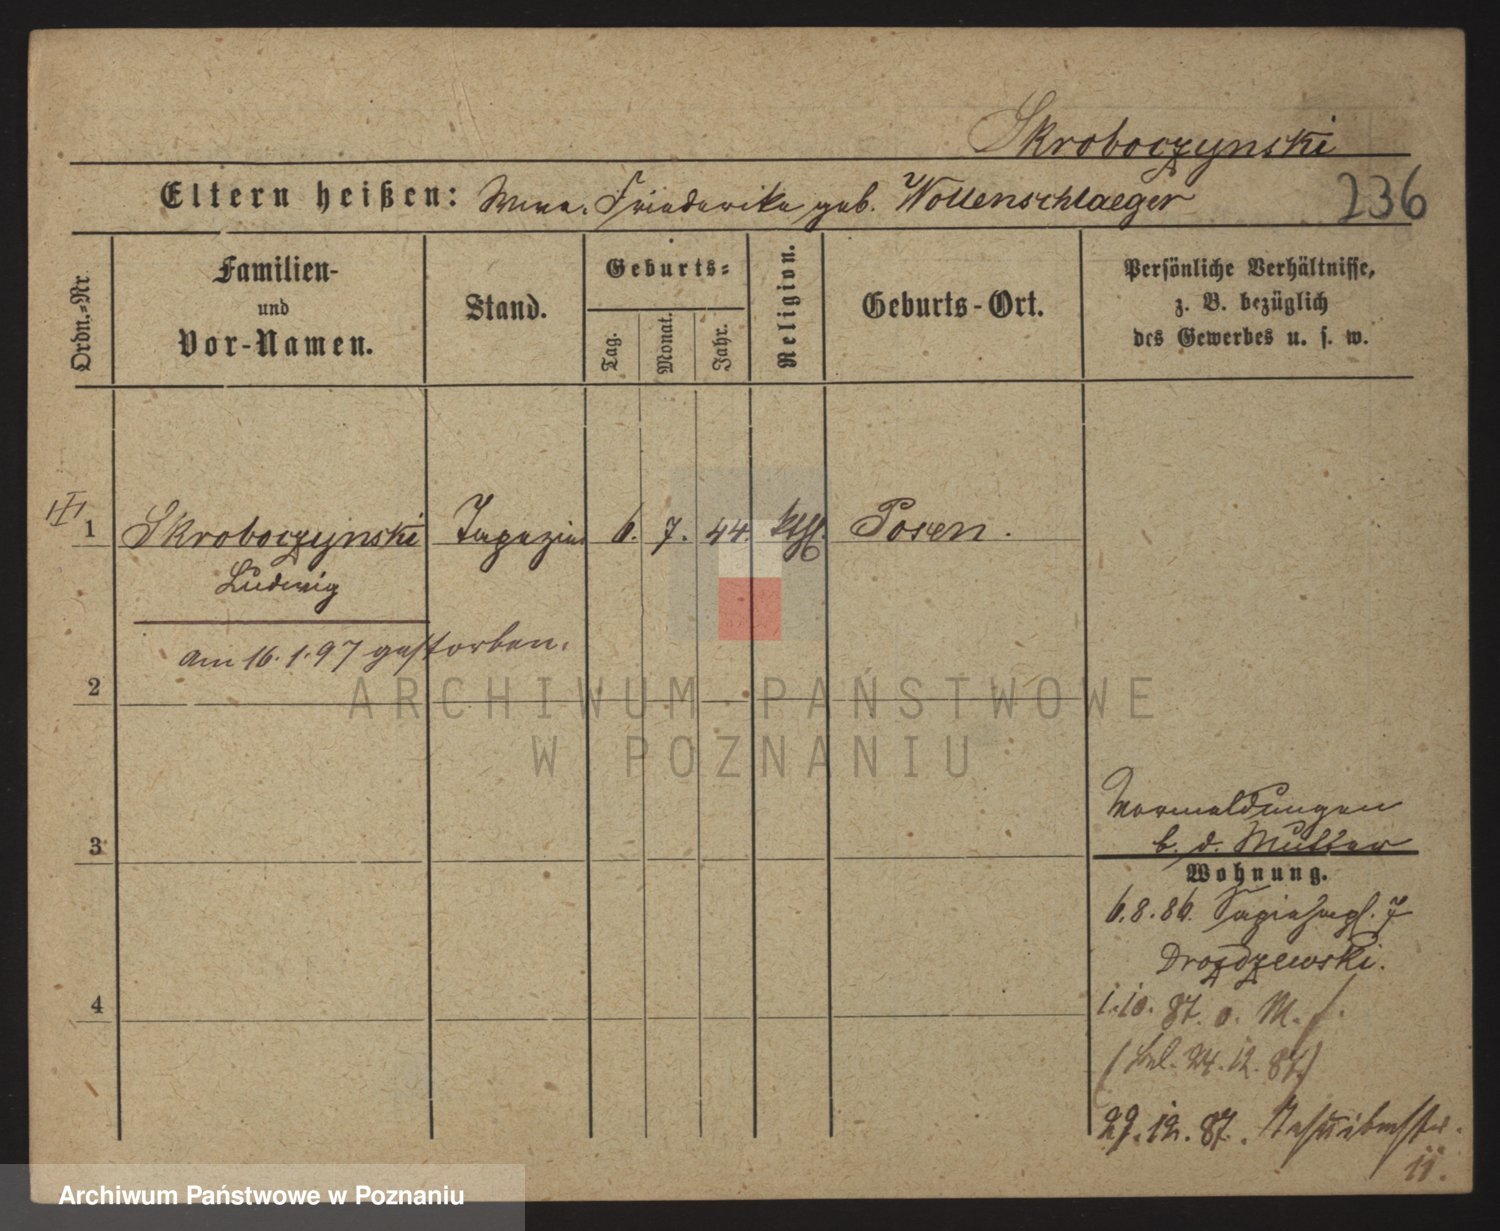 Skroboczynski
Eltern heißen: Wwe. Friederike geb. Wollenschlaeger
236
Ordn.-Nr
Familien-
und
Vor-Namen.
Stand.
Geburts-
Tag.
Monat.
Jahr.
Religion.
Geburts-Ort.
Persönliche Verhältnisse,
z. B. bezüglich
des Gewerbes u. s. w.
III
1 Skroboczynski Tapezier 6. 7. 44. kth. Posen.
Ludwig
am 16.1.97 gestorben.
2
ARCHIWUM PAŃSTWOWE
W POZNANIU
Vormeldungen
b. d. Mutter
3
Wohnung.
6.8.86. 7
Drozdzewski.
4
1.10. 87. o. M.
24.12.87)
29.12.87.
11.
Archiwum Państwowe w Poznaniu